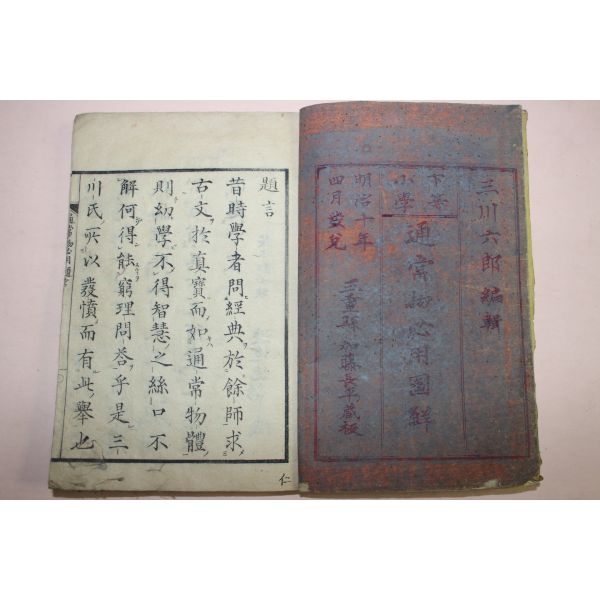 三川六郎編輯
下等
小學
通常物必用圖解
明治十年
四月發兌
三重縣 加藤長平藏板
題言
昔時學者問經典於餘師求
古文於真寶而如通常物體
則幼學不得智慧之絲口不
解何得能窮理問答乎是三
川氏所以發憤而有此舉也
仁